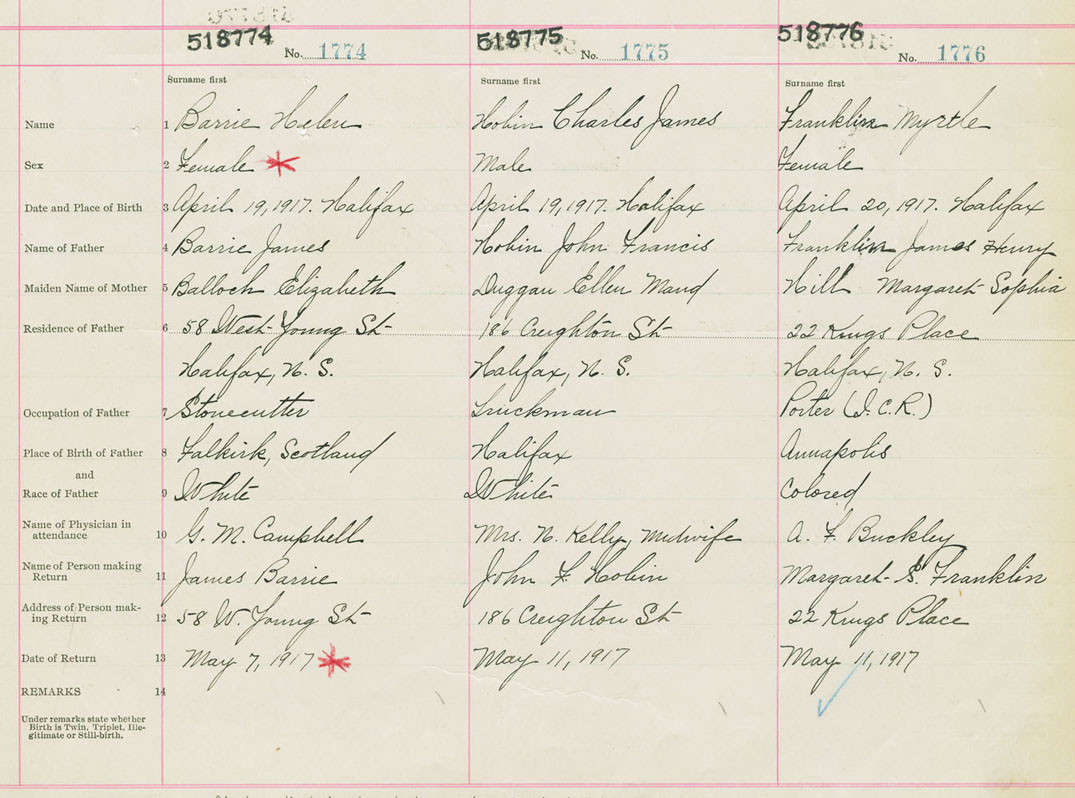 518774 518775 518776
No. 1774 No. 1775 No. 1776
Surname first Surname first Surname first
Name 1 Barrie Helen Hobin Charles James Franklin Myrtle
Sex 2 Female Male Female
Date and Place of Birth 3 April 19, 1917. Halifax April 19, 1917. Halifax April 20, 1917. Halifax
Name of Father 4 Barrie James Hobin John Francis Franklin James Henry
Maiden Name of Mother 5 Balloch Elizabeth Duggan Ellen Maud Hill Margaret Sophia
Residence of Father 6 58 West Young St 186 Creighton St 22 Kings Place
Halifax, N. S. Halifax, N. S. Halifax, N. S.
Occupation of Father 7 Stonecutter Truckman Porter (I.C.R.)
Place of Birth of Father 8 Falkirk, Scotland Halifax Annapolis
and
Race of Father 9 White White Colored
Name of Physician in
attendance 10 G. M. Campbell Mrs. N. Kelly, Midwife A. F. Buckley
Name of Person making
Return 11 James Barrie John F Hobin Margaret S. Franklin
Address of Person mak-
ing Return 12 58 W. Young St 186 Creighton St 22 Kings Place
Date of Return 13 May 7, 1917 May 11, 1917 May 11, 1917
REMARKS 14
Under remarks state whether
Birth is Twin, Triplet, Ille-
gitimate or Still-birth.